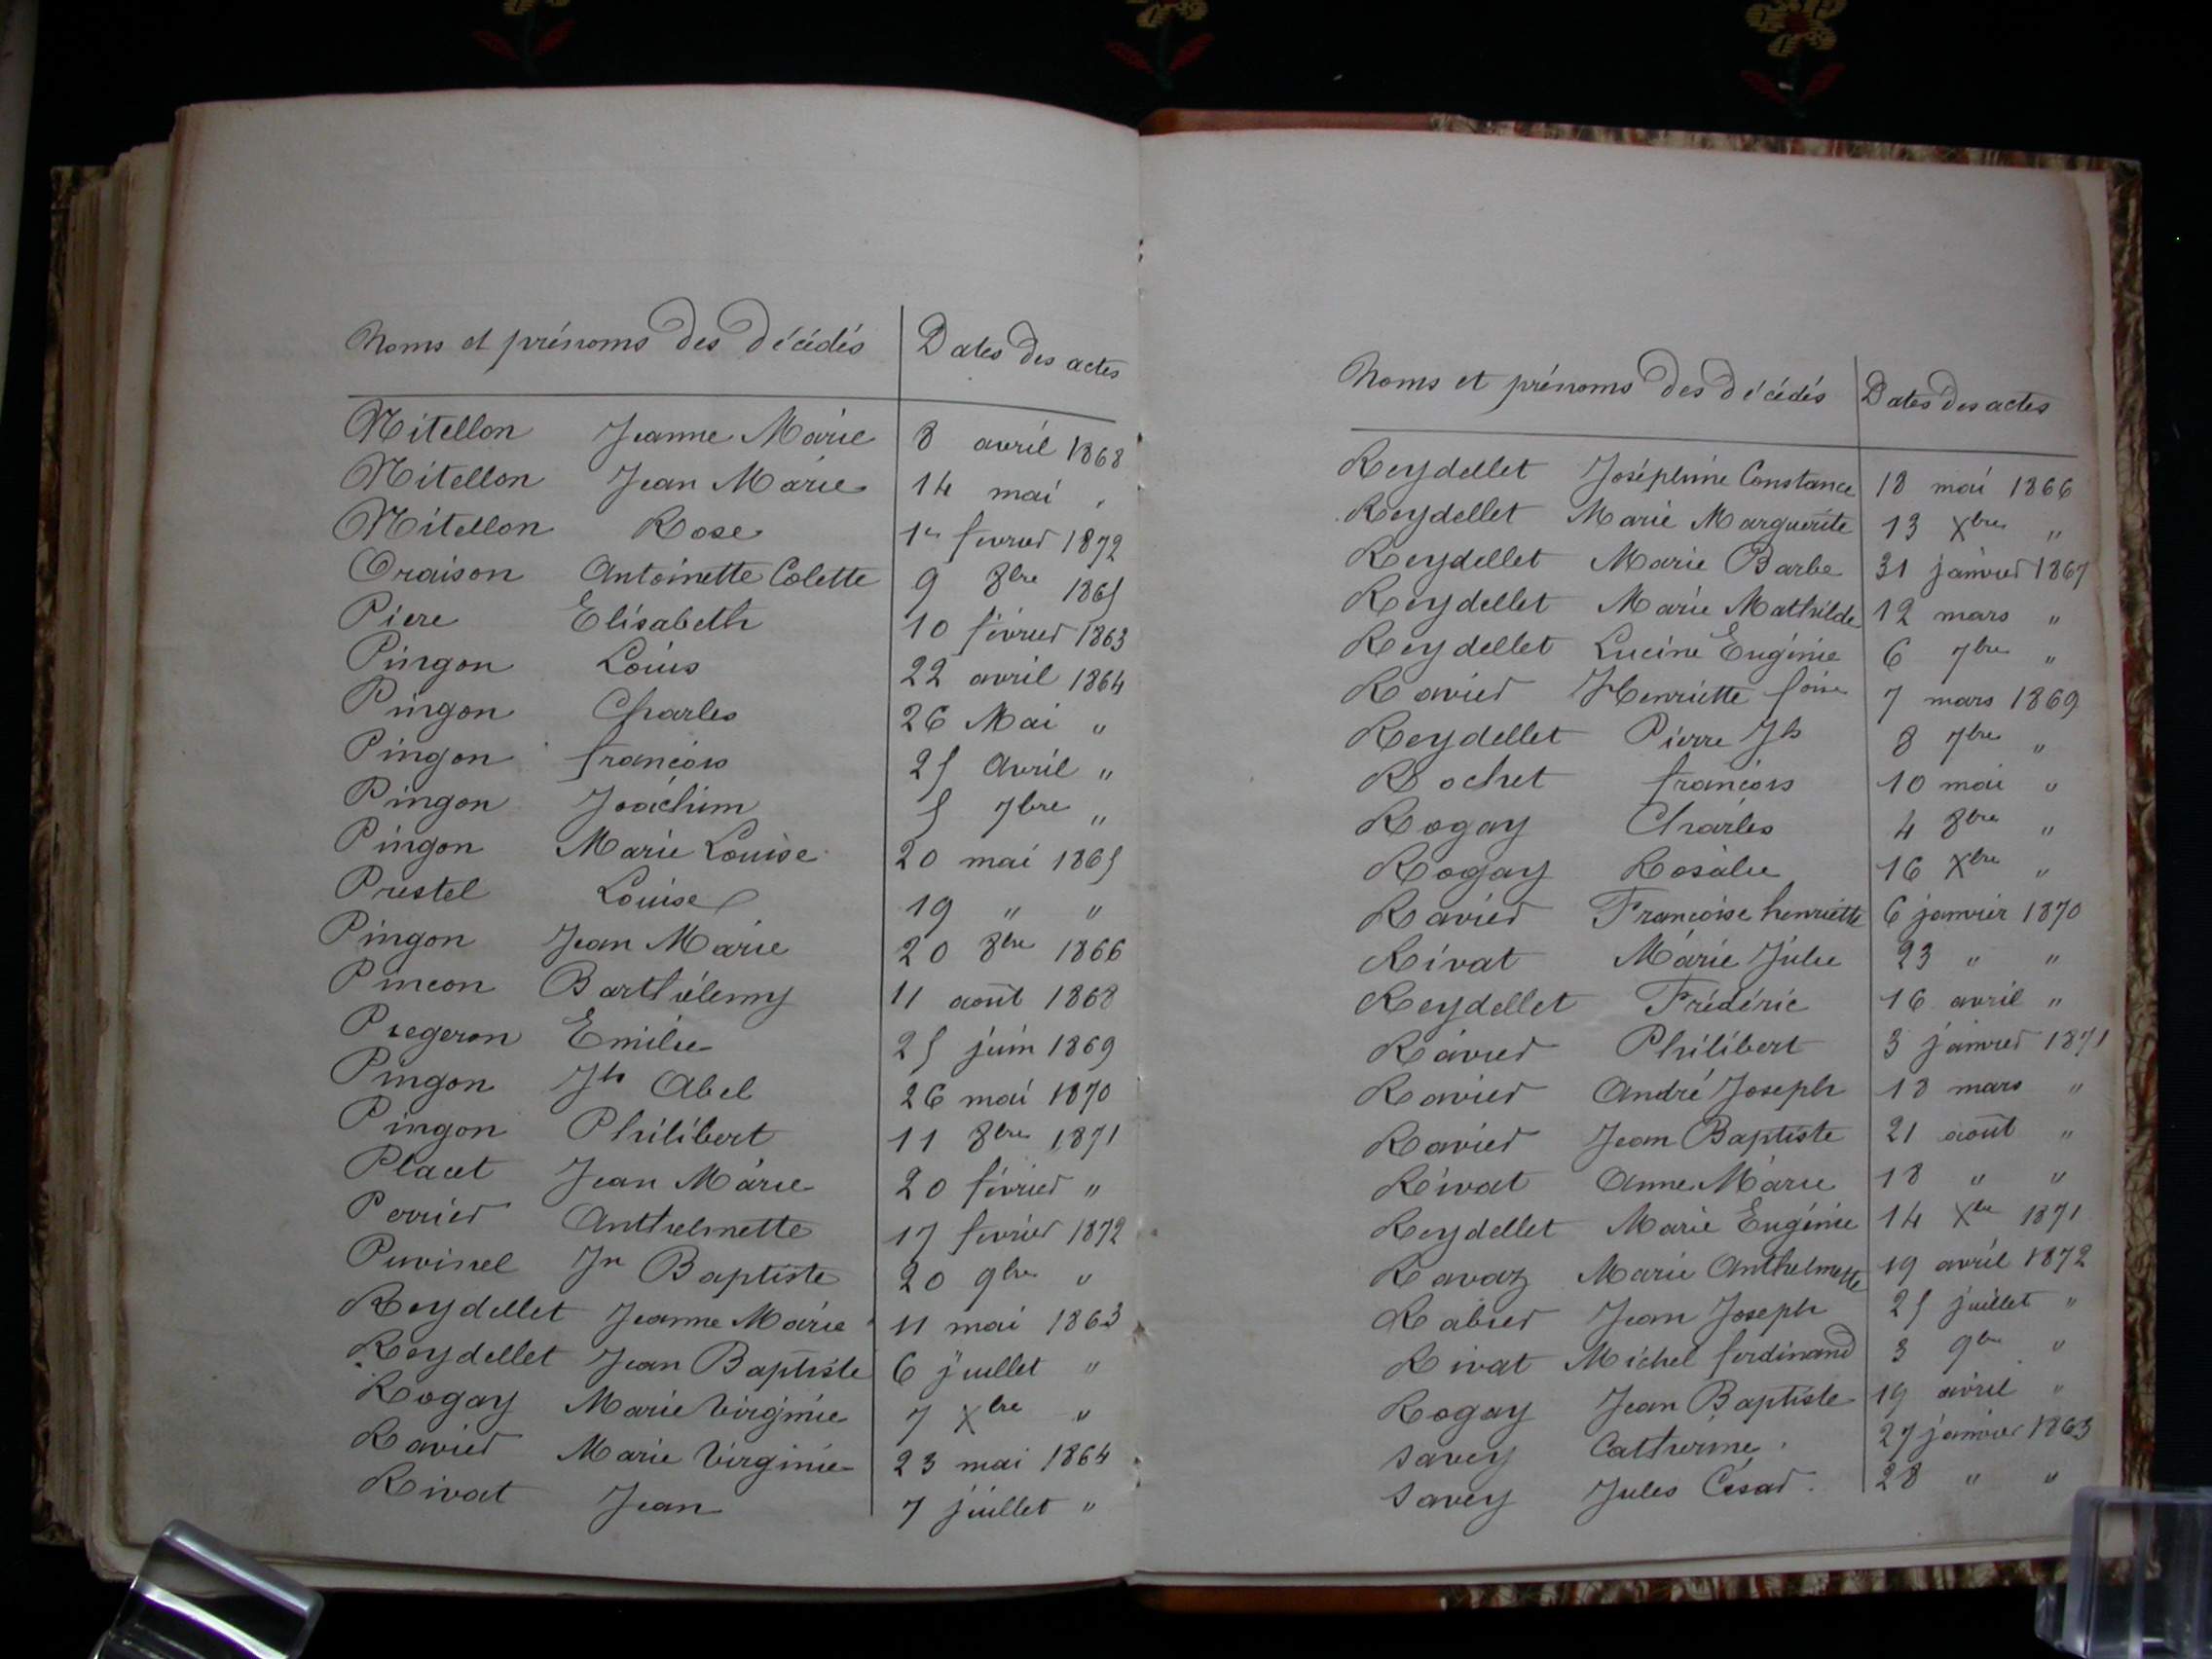 Noms et prénoms des décédés Dates des actes
Mitellon Jeanne Marie 8 avril 1868
Mitellon Jean Marie 14 mai "
Mitellon Rose 1er fevrier 1872
Oraison Antoinette Colette 9 8bre 1865
Piere Elisabeth 10 février 1863
Pingon Louis 22 avril 1864
Pingon Charles 26 Mai "
Pingon françois 25 Avril "
Pingon Joachim 5 7bre "
Pingon Marie Louise 20 mai 1865
Prestel Louise 19 " "
Pingon Jean Marie 20 8bre 1866
Pincon Barthélemy 11 août 1868
Pregeron Emilie 25 juin 1869
Pingon Jh Abel 26 mai 1870
Pingon Philibert 11 8bre 1871
Placet Jean Marie 20 février "
Perrier Anthelmette 17 fevrier 1872
Puvinel Jn Baptiste 20 9bre "
Reydellet Jeanne Marie 11 mai 1863
Reydellet Jean Baptiste 6 juillet "
Rogay Marie Virginie 7 Xbre "
Ravier Marie Virginie 23 mai 1864
Rivat Jean 7 juillet "
Noms et prénoms des décédés Dates des actes
Reydellet Joséphine Constance 18 mai 1866
Reydellet Marie Marguerite 13 Xbre "
Reydellet Marie Barbe 31 janvier 1867
Reydellet Marie Mathilde 12 mars "
Reydellet Lucine Eugénie 6 7bre "
Ravier Henriette foise 7 mars 1869
Reydellet Pierre Jh 8 7bre "
Rochet françois 10 mai "
Rogay Charles 4 8bre "
Rogay Rosalie 16 Xbre "
Ravier Françoise henriette 6 janvier 1870
Rivat Marie Julie 23 " "
Reydellet Frédéric 16 avril "
Ravier Philibert 3 janvier 1871
Ravier André Joseph 18 mars "
Ravier Jean Baptiste 21 août "
Rivat Anne Marie 18 " "
Reydellet Marie Eugénie 14 Xbre 1871
Ravaz Marie Anthelmette 19 avril 1872
Rabier Jean Joseph 25 juillet "
Rivat Michel ferdinand 3 9bre "
Rogay Jean Baptiste 19 avril "
Savey Catherine 27 janvier 1863
Savey Jules César 28 " "